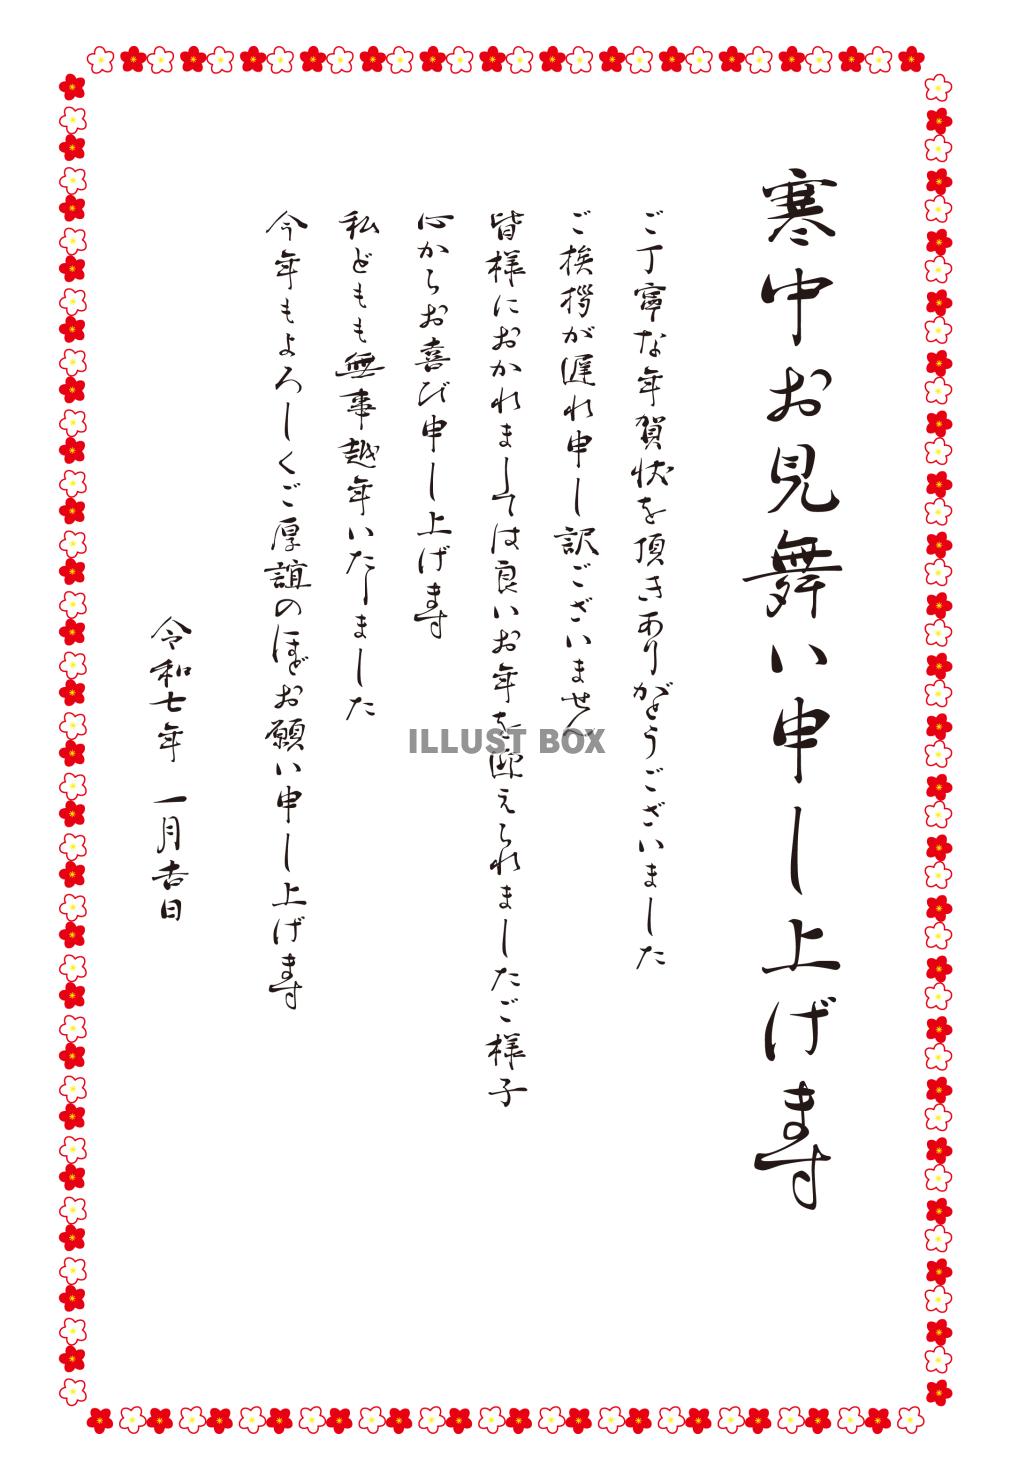 寒中お見舞い申し上げます
ご丁寧な年賀状を頂きありがとうございました
ご挨拶が遅れ申し訳ございません
皆様におかれましては良いお年を迎えられましたご様子
心からお喜び申し上げます
私どもも無事越年いたしました
今年もよろしくご厚誼のほどお願い申し上げます
令和七年 一月吉日
ILLUST BOX